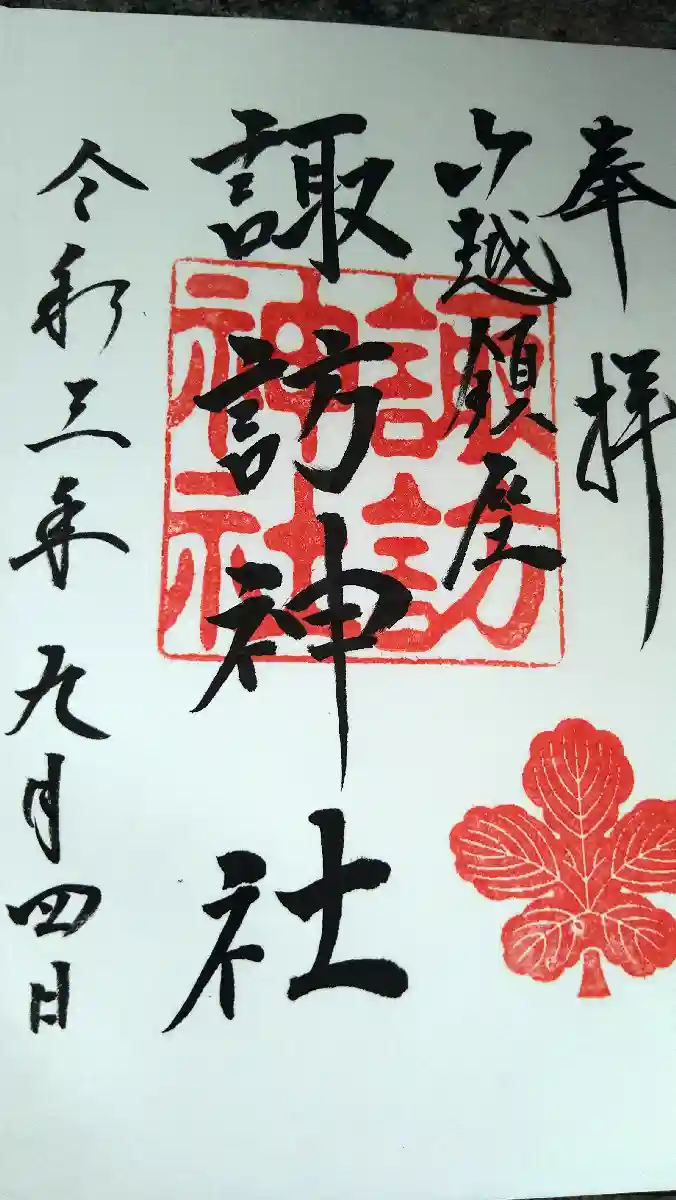 奉拝
山越鎮座
諏訪神社
諏訪
神社
令和三年九月四日